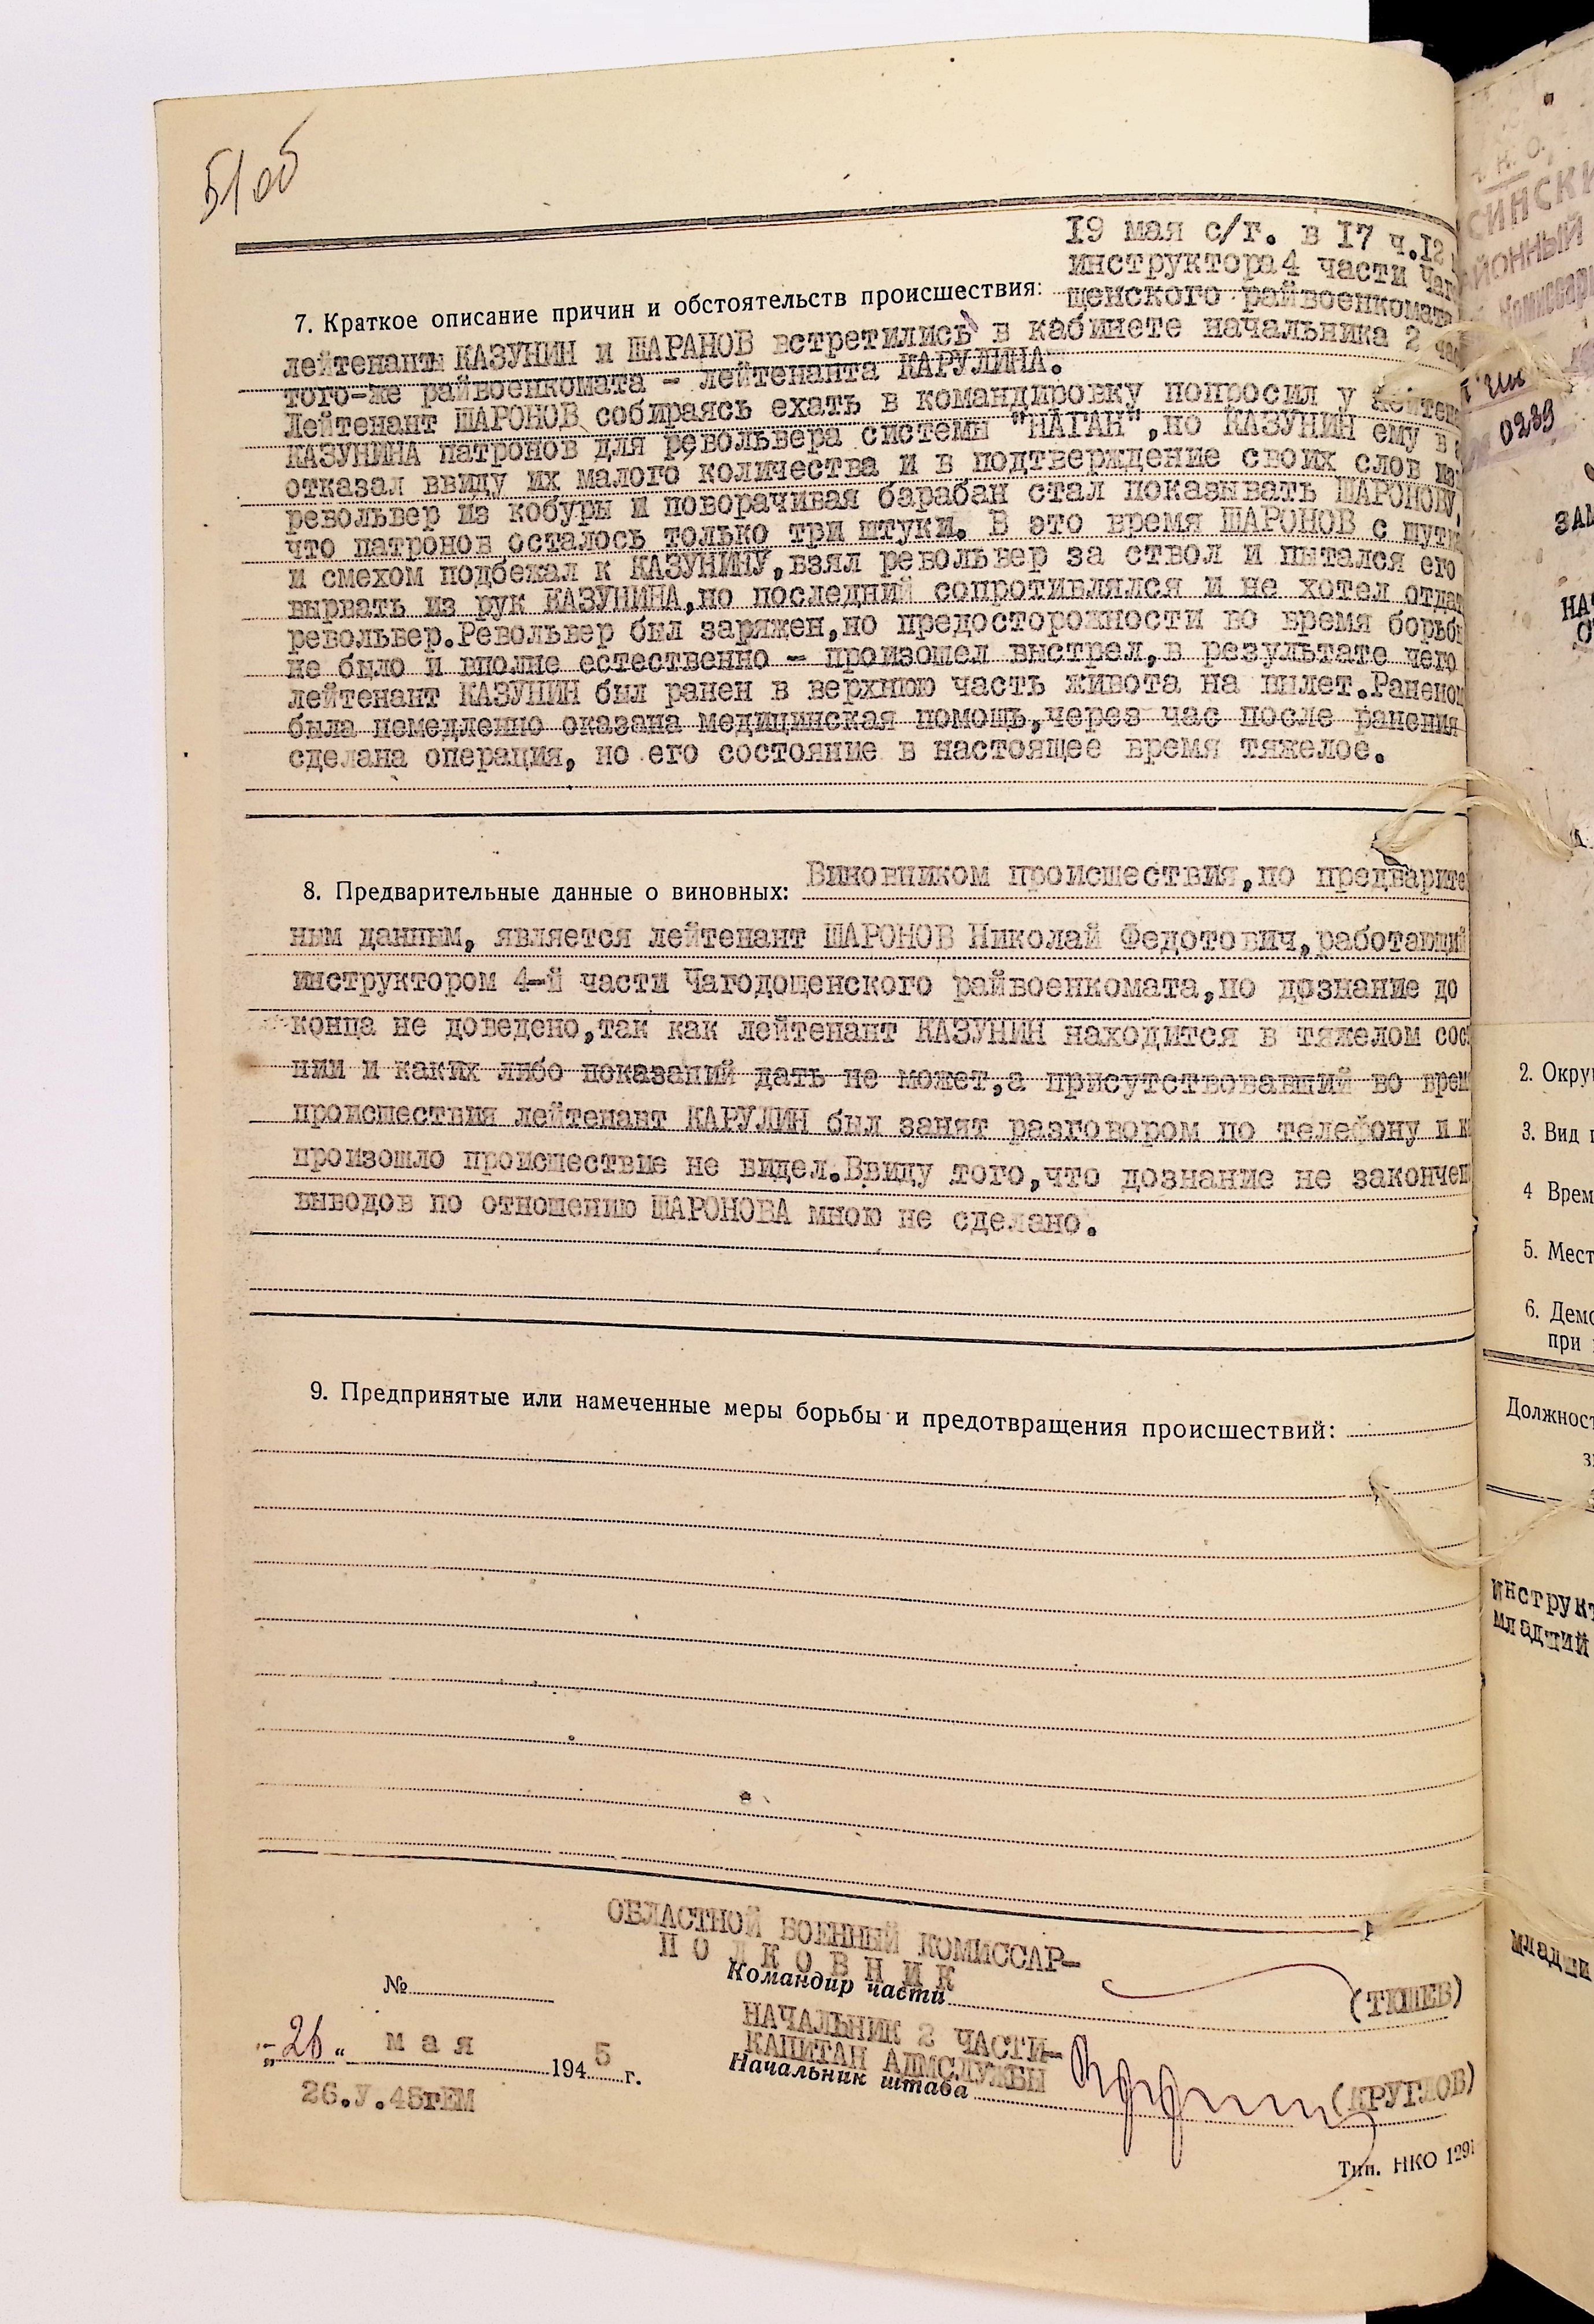 51об
19 мая с/г. в 17 ч.12
инструктора 4 части Чаг
7. Краткое описание причин и обстоятельств происшествия: щенского райвоенкомата
лейтенанты КАЗУНИН и ШАРАНОВ встретились в кабинете начальника 2 час
того-же райвоенкомата - лейтенанта КАРУЛИНА.
Лейтенант ШАРОНОВ собираясь ехать в командировку попросил у лейтен
КАЗУНИНА патронов для револьвера системы "НАГАН", но КАЗУНИН ему в
отказал ввиду их малого количества и в подтверждение своих слов из
револьвер из кобуры и поворачивая барабан стал показывать ШАРОНОВУ,
что патронов осталось только три штуки. В это время ШАРОНОВ с шутк
и смехом подбежал к КАЗУНИНУ, взял револьвер за ствол и пытался его
вырвать из рук КАЗУНИНА, но последний сопротивлялся и не хотел отда
револьвер. Револьвер был заряжен, но предосторожности во время борьб
не было и вполне естественно - произошел выстрел, в результате чего
лейтенант КАЗУНИН был ранен в верхнюю часть живота на вылет. Раненом
была немедленно оказана медицинская помощь, через час после ранения
сделана операция, но его состояние в настоящее время тяжелое.
8. Предварительные данные о виновных: Виновником происшествия, по предварите
ным данным, является лейтенант ШАРОНОВ Николай Федотович, работающий
инструктором 4-й части Чагодощенского райвоенкомата, но дознание до
конца не доведено, так как лейтенант КАЗУНИН находится в тяжелом сос
нии и каких либо показаний дать не может, а присутствовавший во врем
происшествия лейтенант КАРУЛИН был занят разговором по телефону и к
произошло происшествие не видел. Ввиду того, что дознание не закончен
выводов по отношению ШАРОНОВА мною не сделано.
9. Предпринятые или намеченные меры борьбы и предотвращения происшествий:
ОБЛАСТНОЙ ВОЕННЫЙ КОМИССАР-
ПОЛКОВНИК
Командир части (ТЮШЕВ)
№
НАЧАЛЬНИК 2 ЧАСТИ-
КАПИТАН АДМСЛУЖБЫ
Начальник штаба (КРУГЛОВ)
"26" мая 1945 г.
26.У.45гЕМ
Тип. НКО 1291
Н. К. О.
СИНСКИ
ЙОННЫЙ
Комиссари
0239
ЗАМ
НА
2. Окру
3. Вид
4 Врем
5. Мест
6. Демо
при
Должност
инструкт
младший
младши